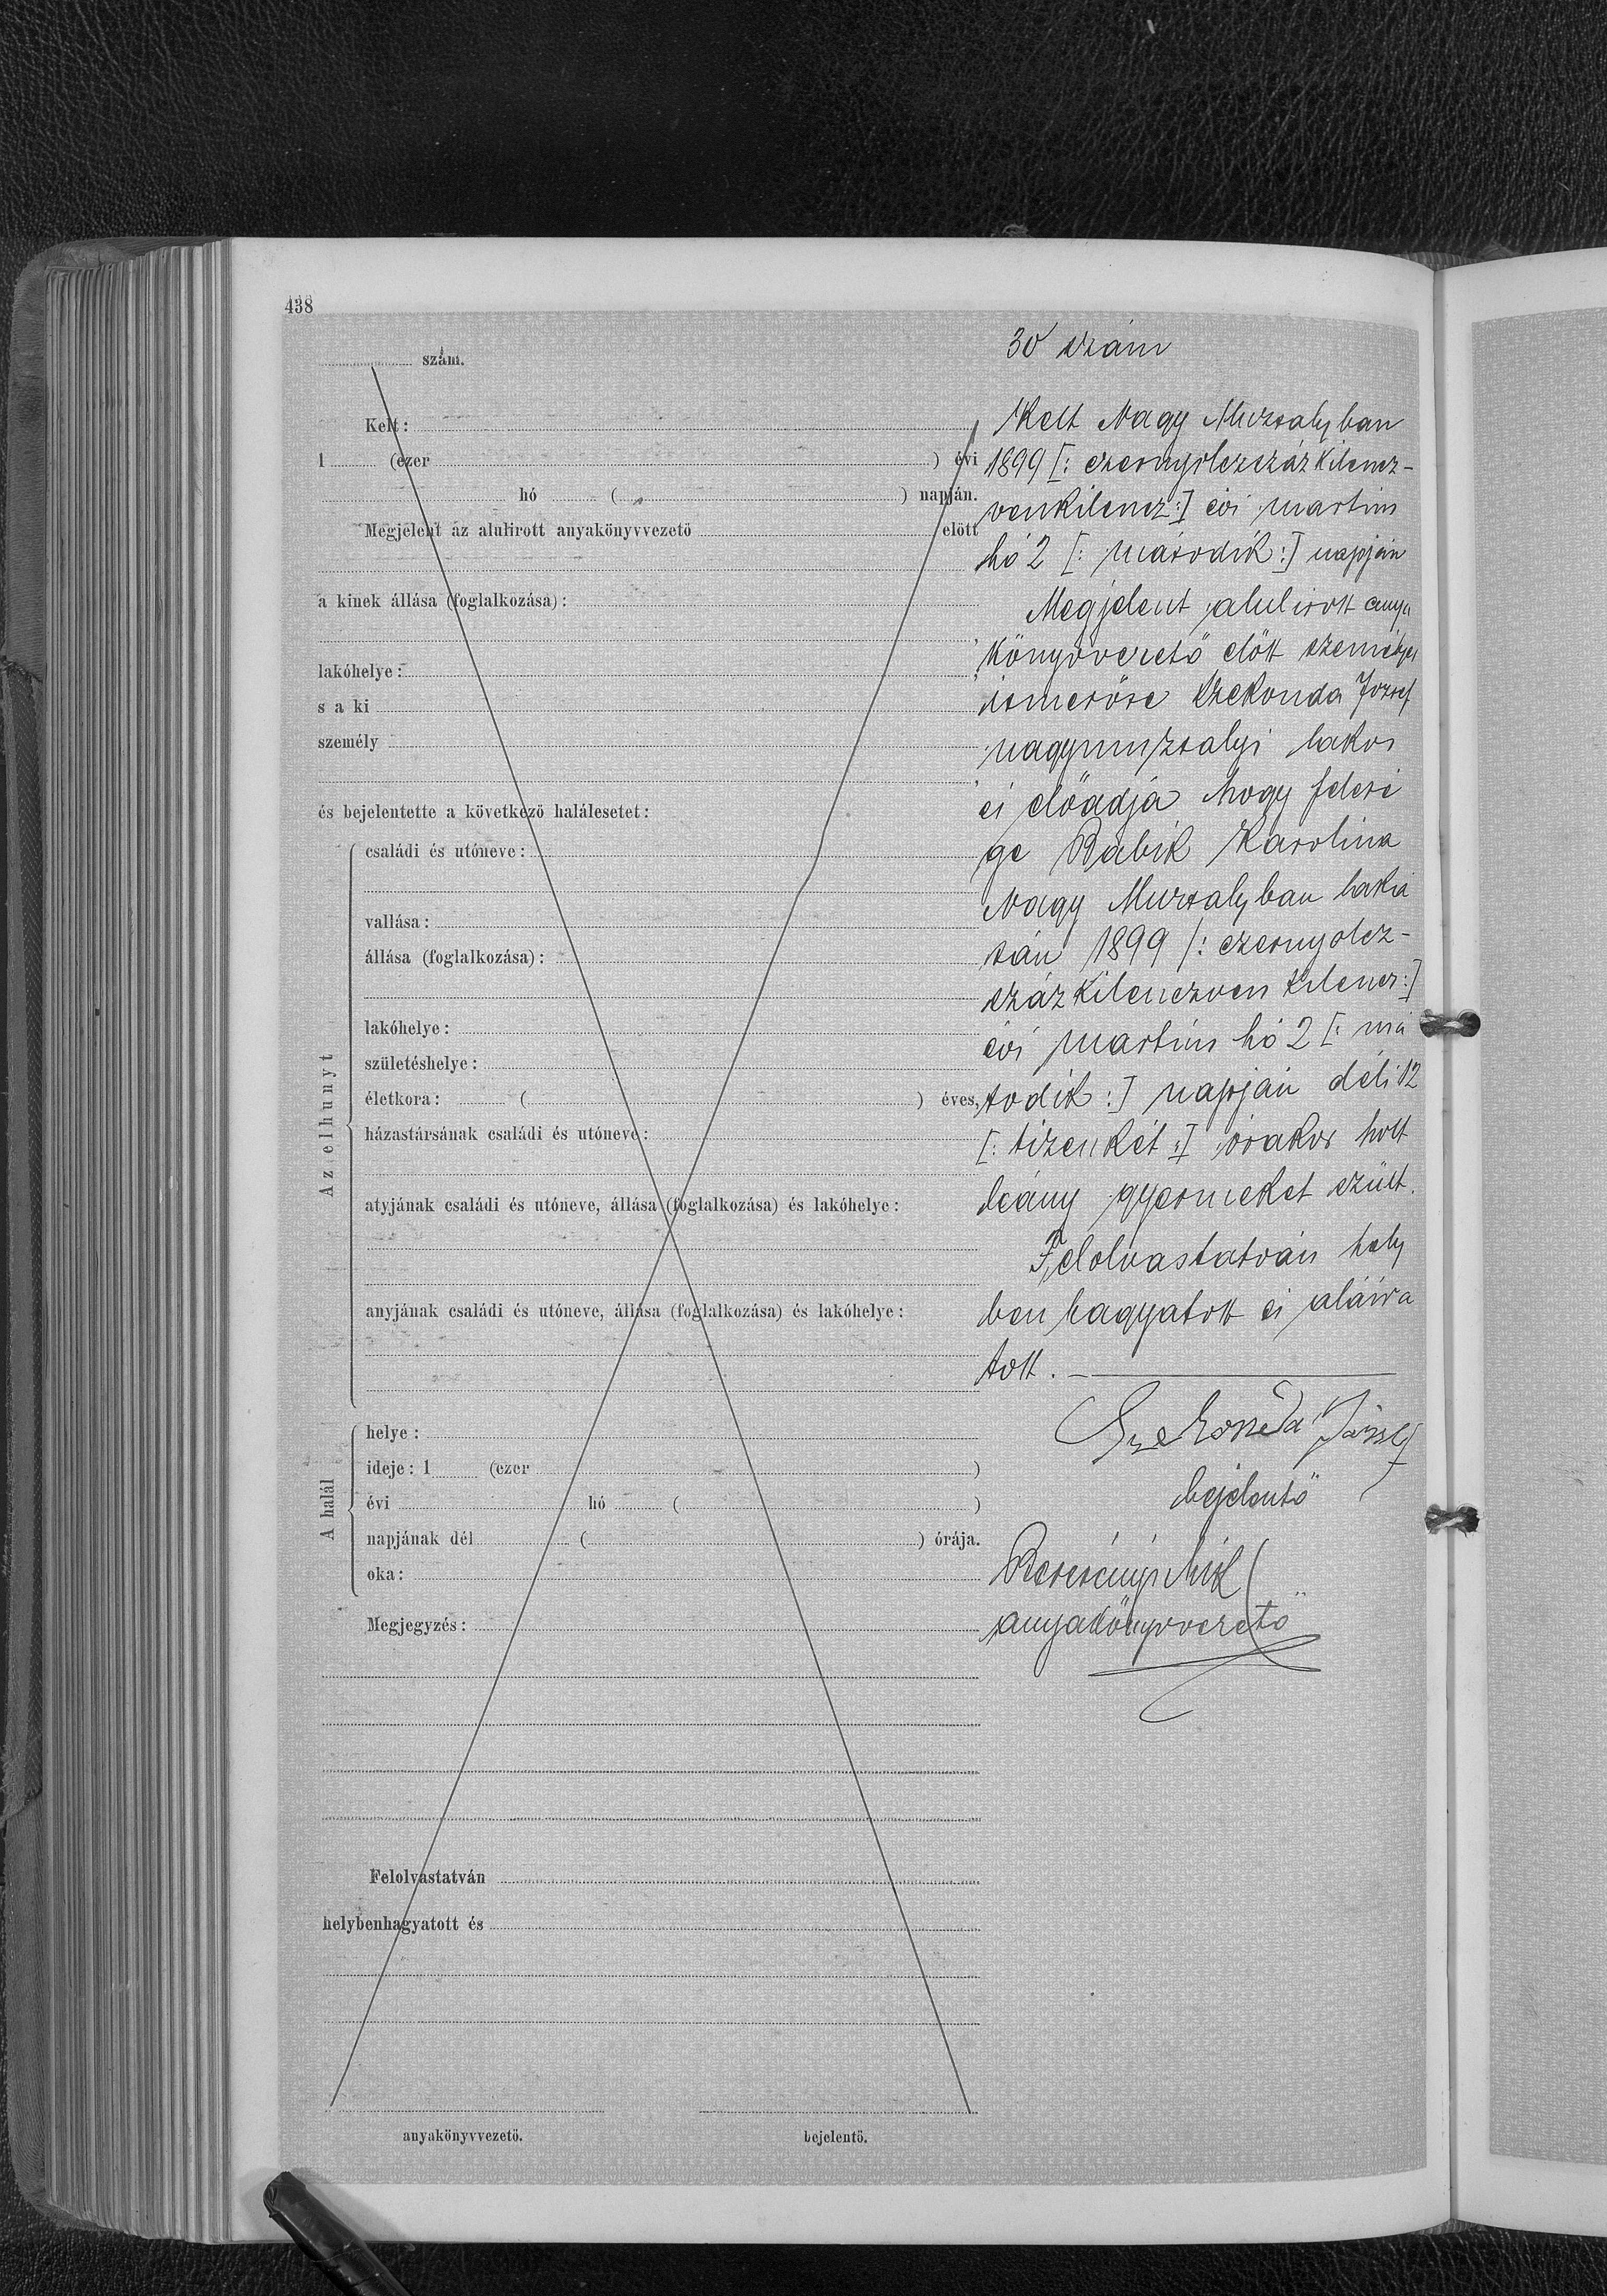 438
szám.
Kelt:
1 (ezer ) évi
hó ( ) napján.
Megjelent az alulirott anyakönyvvezető előtt
a kinek állása (foglalkozása):
lakóhelye:
s a ki
személy
és bejelentette a következő halálesetet:
Az elhunyt
családi és utóneve:
vallása:
állása (foglalkozása):
lakóhelye:
születéshelye:
életkora: ( ) éves,
házastársának családi és utóneve:
atyjának családi és utóneve, állása (foglalkozása) és lakóhelye:
anyjának családi és utóneve, állása (foglalkozása) és lakóhelye:
A halál
helye:
ideje: 1 (ezer )
évi hó ( )
napjának dél ( ) órája.
oka:
Megjegyzés:
Felolvastatván
helybenhagyatott és
anyakönyvvezető.
bejelentő.
30 szám
Kelt Nagy Muzsalyban
1899 [: ezernyolczszázkilencz-
venkilencz:] évi martius
hó 2 [: második:] napján
Megjelent alulirott anya
könyvvezető előtt személyes
ismerőse Szekonda József
nagymuzsalyi lakos
és előadja hogy felesé
ge Babik Karolina
Nagy Muzsalyban laká
sán 1899 [: ezernyolcz-
százkilenczven kilencz:]
évi martius hó 2 [: má
sodik:] napján déli 12
[: tizenkét:] órakor holt
leány gyermeket szült.
Felolvastatván hely
ben hagyatott és aláira
tott.
Szekonda József
bejelentő
anyakönyvvezető